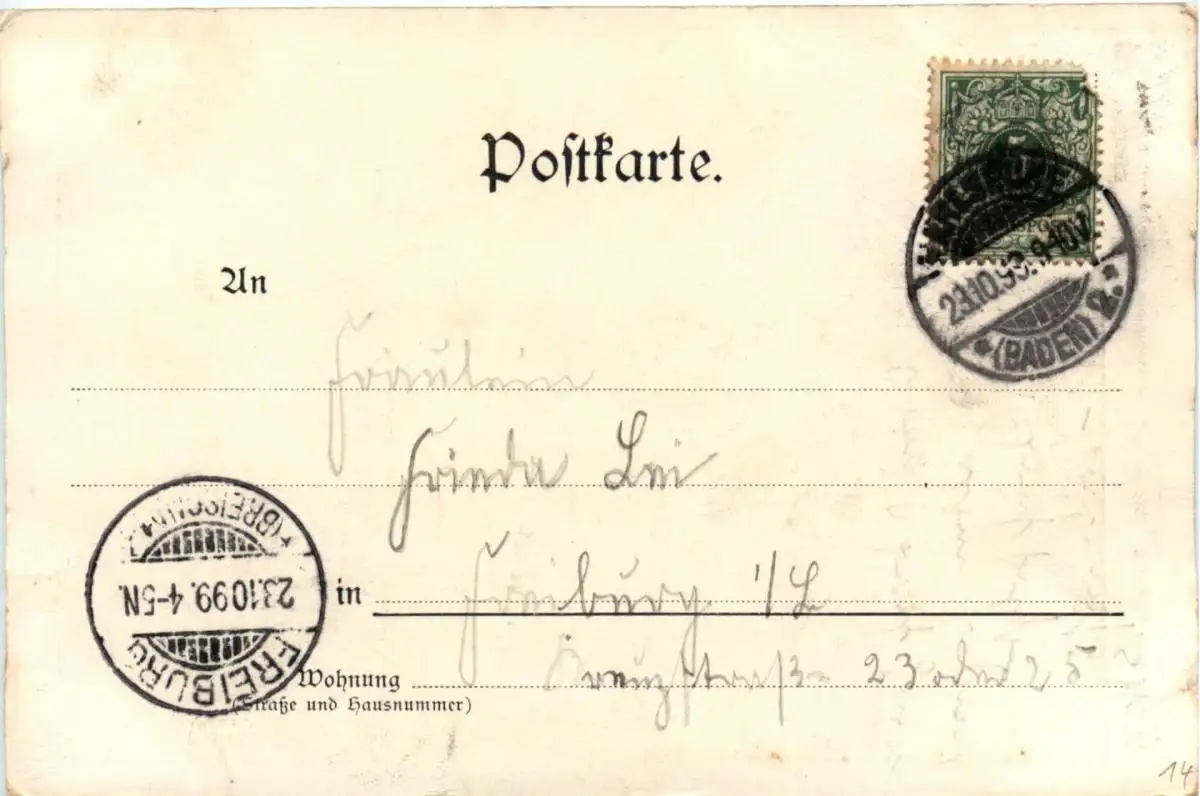 Postkarte.
5
(BADEN) 2.
23.10.99. 9-10V.
An
Fräulein
Frieda Lei
in Freiburg i/
Wohnung Kreuzstraße 23 oder 25
(Straße und Hausnummer)
FREIBURG
23.10.99. 4-5N.
(BREISGAU)
14